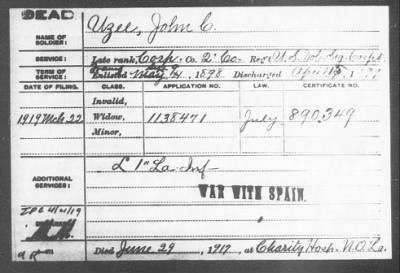 DEAD
NAME OF SOLDIER: Uzee, John C.
SERVICE: Late rank, Corp. Co. 2" Co. Reg't U.S. Vol. Sig. Corps
TERM OF SERVICE: Enlisted May 14, 1898. Discharged April 15, 1899
DATE OF FILING. CLASS. APPLICATION NO. LAW. CERTIFICATE NO.
Invalid,
1919 Mch. 22 Widow, 1138471 July 890,349
Minor,
ADDITIONAL SERVICES: L 1" La. Inf
WAR WITH SPAIN.
Died June 29, 1917, at Charity Hosp. N.O. La.